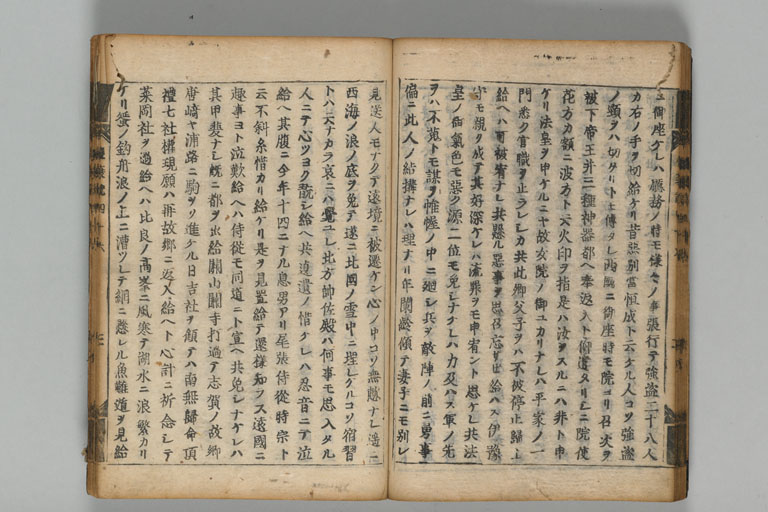 カ右ノ手ヲ切給ケリ昔悪別當恒成ト云ケル人コソ強盗
ノ頸ヲハ切ケリト上傳タレ西國ニ御座時モ院ヨリ召次ヲ
被下帝王并三種神器都ヘ奉返入ト仰遣タリシニ院使
花方カ額ニ波方ト云火印ヲ指是ハ汝ヲスルニハ非ト申
ケリ法皇ヲ申ケルニヤ故女院ノ御ユカリナレハ平家ノ一
門悉ク官職ヲ止ラレシカ共此卿父子ヲハ不被停止歸上
給ヘハ可被宥ナレ共懸ル悪事ヲ思召忘サセ給ハス伊豫
守モ親ク成テ其好深ケレハ流罪ヲモ申宥ント思ケレ共法
皇ノ御氣色モ悪ク源二位モ免シナケレハ力及ハス軍ノ先
ヲハ不蒐トモ謀ヲ帷幄ノ中ニ廻シ兵ヲ敵陣ノ前ニ勇事
偏ニ此人ノ結搆ナレハ理ナリ年闌齢傾テ妻子ニモ別レ
見送人モナクテ遠境ニ被遷ケン心ノ中コソ無慙ナレ遥ニ
西海ノ浪ノ底ヲ免テ遂ニ北國ノ雪中ニ埋レケルコソ宿習
トハ云ナカラ哀ニハ覺ユレ北方帥佐殿ハ何事モ思入タル
人ニテ心ツヨク翫シ給ヘ共遺ノ惜ケレハ忍音ニテ泣
給ヘ其腹ニ今年十四ニナル息男アリ尾張侍從時宗ト
云不斜糸惜カリ給ケリ是ヲ見置給テ還様知ラス遠國ニ
趣事ヨト泣歎給ヘハ侍從モ同道ニト宣ヘ共免シナケレハ
其甲斐ナシ既ニ都ヲ出給關山關寺打過テ志賀ノ故郷
唐崎ヤ浦路ニ駒ヲソ進ケル日吉社ヲ顧テハ南無歸命頂
禮七社權現願ハ再故郷ニ返入給ヘト心計ニ祈念シテ
菜岡社ヲ過給ヘハ比良ノ高峯ニ風寒テ湖水ニ浪繁カリ
ケリ蜑ノ釣舟浪ノ上ニ漕ツレテ網ニ懸レル魚離道ヲ見給